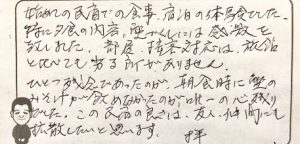 始めての民宿での食事、宿泊の体験でした。
特に夕食の内容、
致しました。部屋、接客対応は、旅館
と比べても劣る所がありません。
ひとつ残念であったが、朝食時に
みそ汁が飲めなかったのが唯一の心残り
でした。この民宿の良さは、友人、仲間にも
拡散したいと思います。 拝